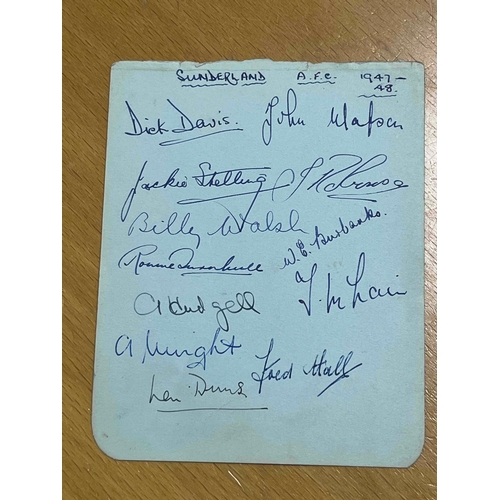 SUNDERLAND A.F.C. 1947-48.
Dick Davis. John Mapson
Jackie Stelling J Robinson
Billy Walsh
W. E. Burbanks.
Ronnie Turnbull
A Hudgell
T. McLain
A. Wright
Len Duns
Fred Hall